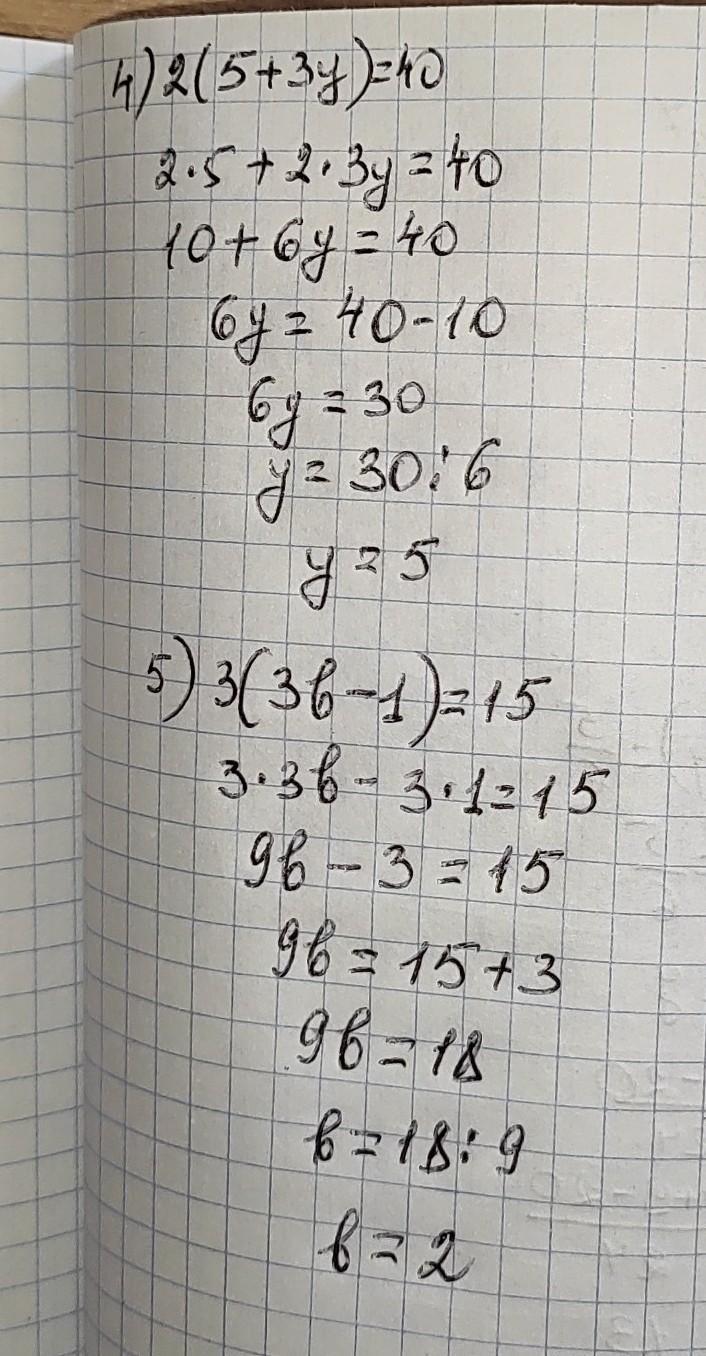 4) 2(5+3y)=40
2·5+2·3y=40
10+6y=40
6y=40-10
6y=30
y=30:6
y=5
5) 3(3b-1)=15
3·3b-3·1=15
9b-3=15
9b=15+3
9b=18
b=18:9
b=2